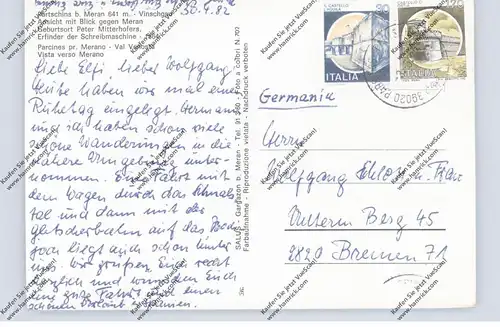 30.4.82
Partschins b. Meran 641 m. - Vinschgau
Ansicht mit Blick gegen Meran
Geburtsort Peter Mitterhofers,
Erfinder der Schreibmaschine
Parcines pr. Merano - Val Venosta
Vista verso Merano
Liebe Elfi, lieber Wolfgang
Heute haben wir mal einen
Ruhetag eingelegt. Hermann
und ich haben schon viele
schöne Wanderungen in die
nähere Umgebung unter-
nommen. Eine Fahrt mit
dem Wagen durch das Schnals-
tal und dann mit der
Gletscherbahn auf das
Joch liegt auch schon hinter
uns. Wir grüßen Euch recht
herzlich und wünschen Euch
eine gute Fahrt und einen
schönen Urlaub
SALUS - Gargazon b. Meran - Tel. 91 240 - Foto a colori N. 703
Farbaufnahme - Riproduzione vietata - Nachdruck verboten
ITALIA
ITALIA
39020
Germania
Herrn
Wolfgang
Unterm Berg 45
2820 Bremen 71
Kaufen Sie jetzt VueScan!
www.hamrick.com